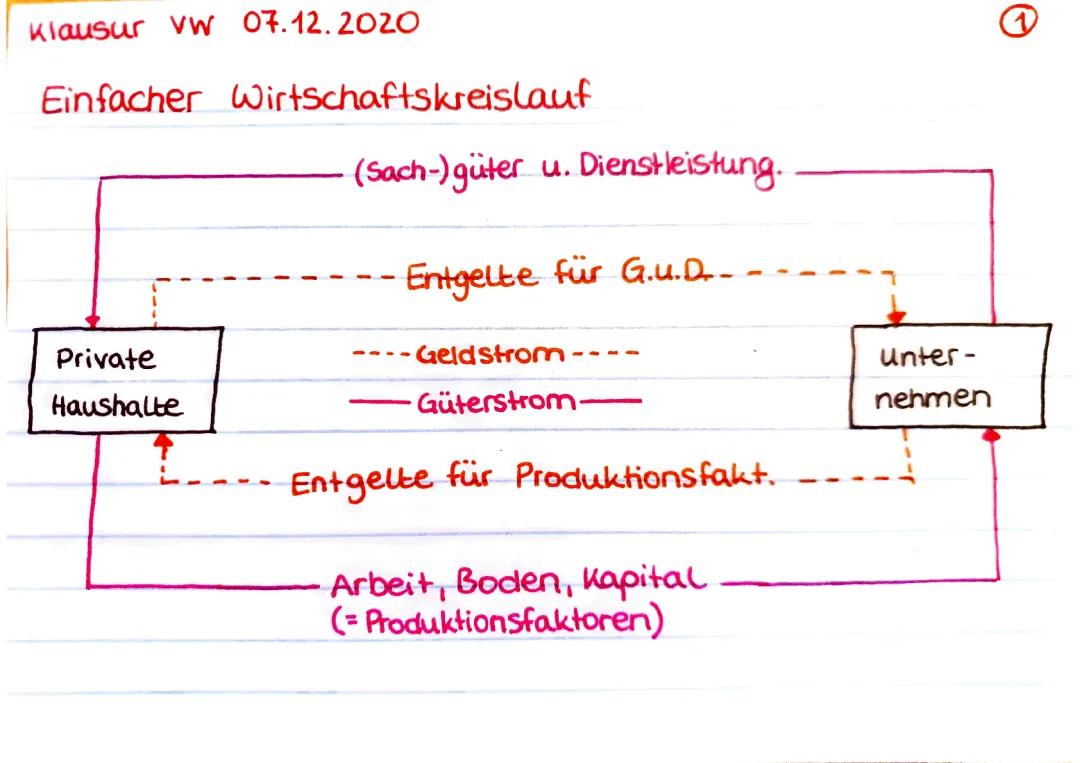 Klausur VW 07.12.2020
1
Einfacher Wirtschaftskreislauf
(Sach-)güter u. Dienstleistung.
Entgelte für G.u.D.
Private
Haushalte
Geldstrom
Güterstrom
Unter-
nehmen
Entgelte für Produktionsfakt.
Arbeit, Boden, Kapital
(= Produktionsfaktoren)